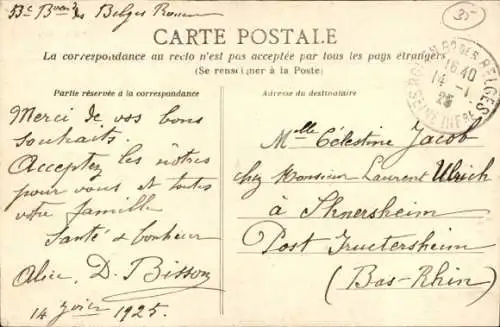 35
Bd des Belges Rouen
CARTE POSTALE
La correspondance au recto n'est pas acceptée par tous les pays étrangers
(Se renseigner à la Poste)
Partie réservée à la correspondance
Adresse du destinataire
ROUEN Bd DES BELGES
16 40
14 - 1
25
SEINE INFRE
Merci de vos bons
souhaits.
Acceptez les nôtres
pour vous et toute
votre famille
Santé & bonheur
D. Bisson
14 1925.
Melle Célestine Jacob
chez Monsieur Laurent Ulrich
à Ihnersheim
Post Truchtersheim
(Bas-Rhin)